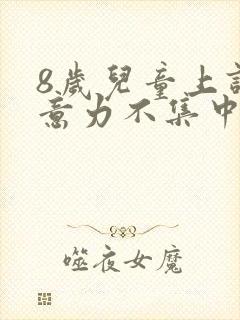 8歲兒童上
意力不集中
噬夜女魔